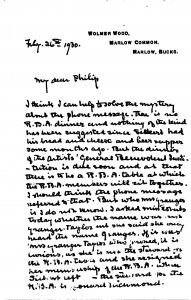 WOLMER WOOD,
MARLOW COMMON,
MARLOW, BUCKS.
Feby. 26th 1930.
My dear Philip
I think I can help to solve the mystery
about the phone message. There is no
R.B.A. dinner and nothing of the kind
has been suggested since Sickert had
his bread and cheese and beer suppers
some months ago. But the dinner
of the Artists' General Benevolent Insti-
tution is due soon and at that
there is to be a R.B.A. table at which
the R.B.A. members will sit together.
I should think the phone message
referred to that. But who Mrs Granger
is I do not know. I asked
today whether the name was
Granger Taylor but she said she
heard the name Granger. If it was
Mrs Granger Taylor who phoned, it is
curious, as she is not the
the R.B.A. and she resigned
her membership of the R.B.A. when
Sickert left. The
R.B.A. is